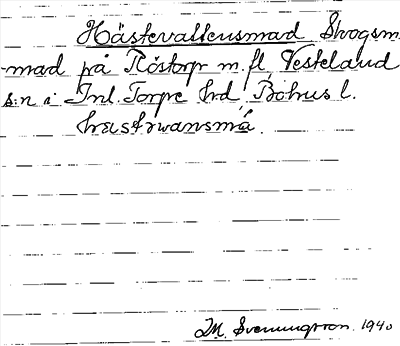 Hästevattensmad Skogsm
mad på Röstorp m.fl, Vesteland
s:n i Inl. Torpe hd, Bohus l.
hæstvwansmå.
M. Svenningsson 1940